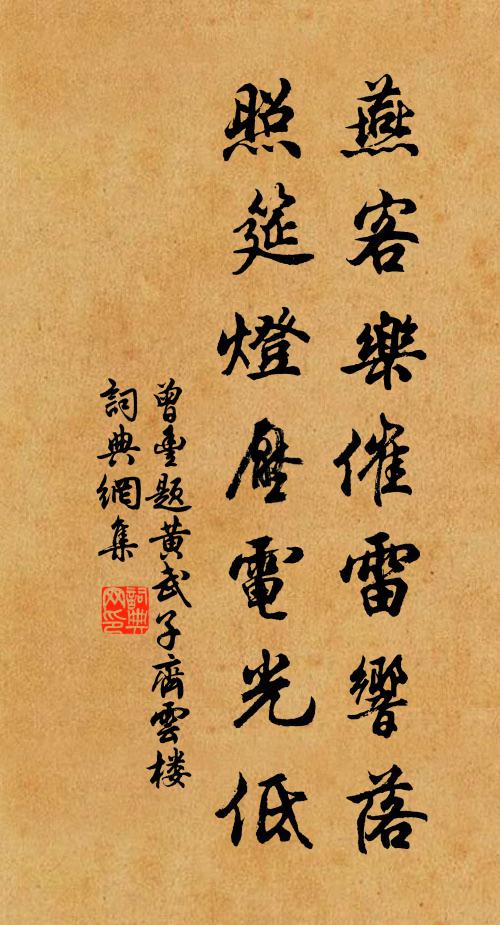 燕客樂催雷響落
照筵燈壓電光低
曾豐題黃武子齊雲樓
詞典網集
詞典网印